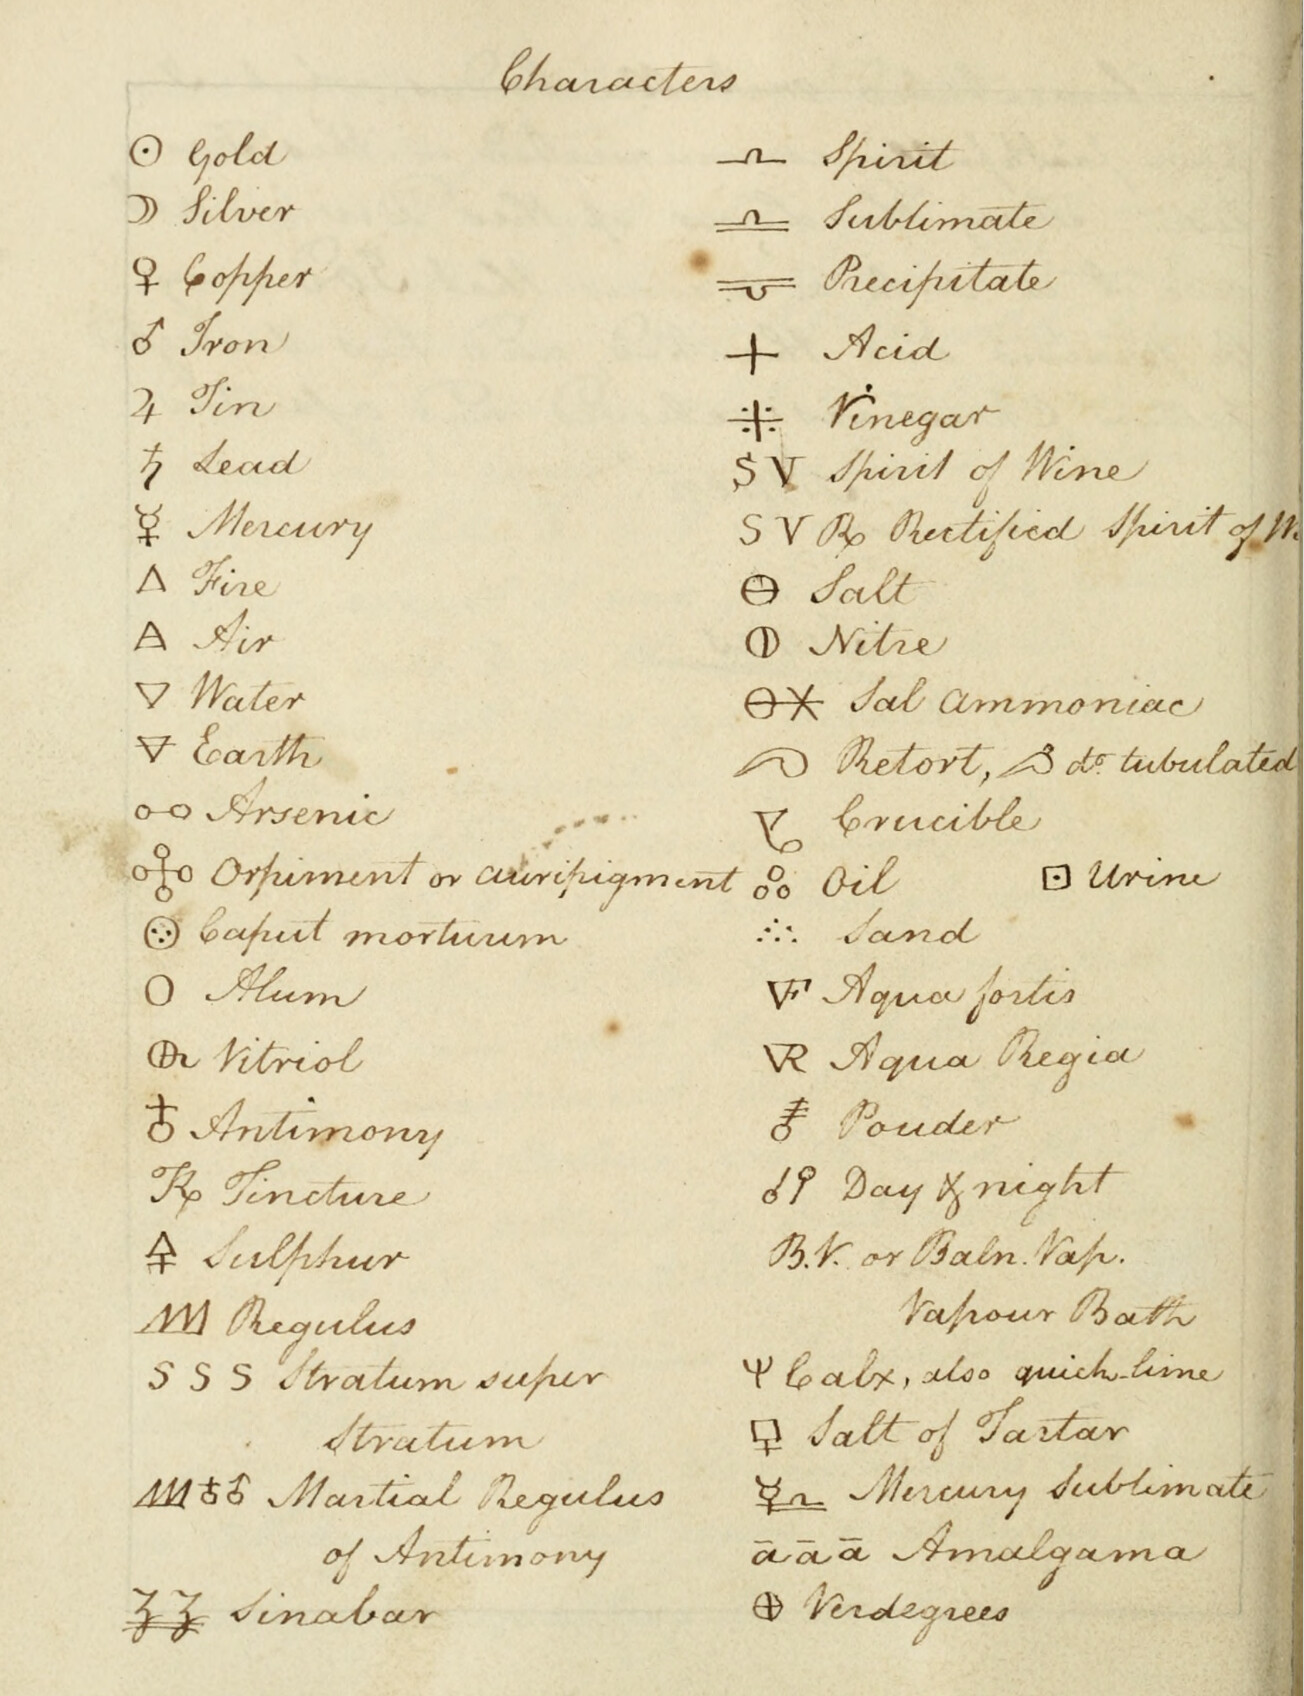 Characters
☉ Gold
☽ Silver
♀ Copper
♂ Iron
♃ Tin
♄ Lead
☿ Mercury
△ Fire
🜁 Air
▽ Water
🜃 Earth
Arsenic
Orpiment or auripigment
Caput mortuum
○ Alum
Vitriol
♁ Antimony
Tincture
🜍 Sulphur
Regulus
S S S Stratum super
Stratum
Martial Regulus
of Antimony
Sinabar
Spirit
Sublimate
Precipitate
+ Acid
Vinegar
S V Spirit of Wine
S V R Rectified Spirit of
🜔 Salt
🜕 Nitre
Sal ammoniac
Retort, do tubulated
Crucible
Oil ⊡ Urine
Sand
Aqua fortis
Aqua Regia
Pouder
Day & night
B.V. or Baln. Vap.
Vapour Bath
Calx, also quick-lime
Salt of Tartar
Mercury Sublimate
ā ā ā Amalgama
⊕ Verdegrees